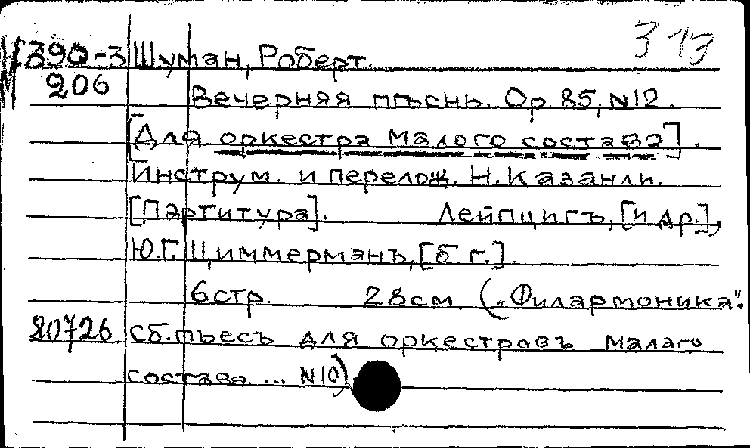 313
390-3 Шуман, Роберт.
206 Вечерняя пѣснь. Ор. 85, N12.
[Для оркестра малого состава].
Инструм. и перелож. Н. Казанли.
[Партитура]. Лейпцигъ, [и др.],
Ю.Г. Циммерманъ, [б. г.].
6 стр. 28 см. („Филармоника".
80726 Сб. пьесъ для оркестровъ малаго
состава ... N10)